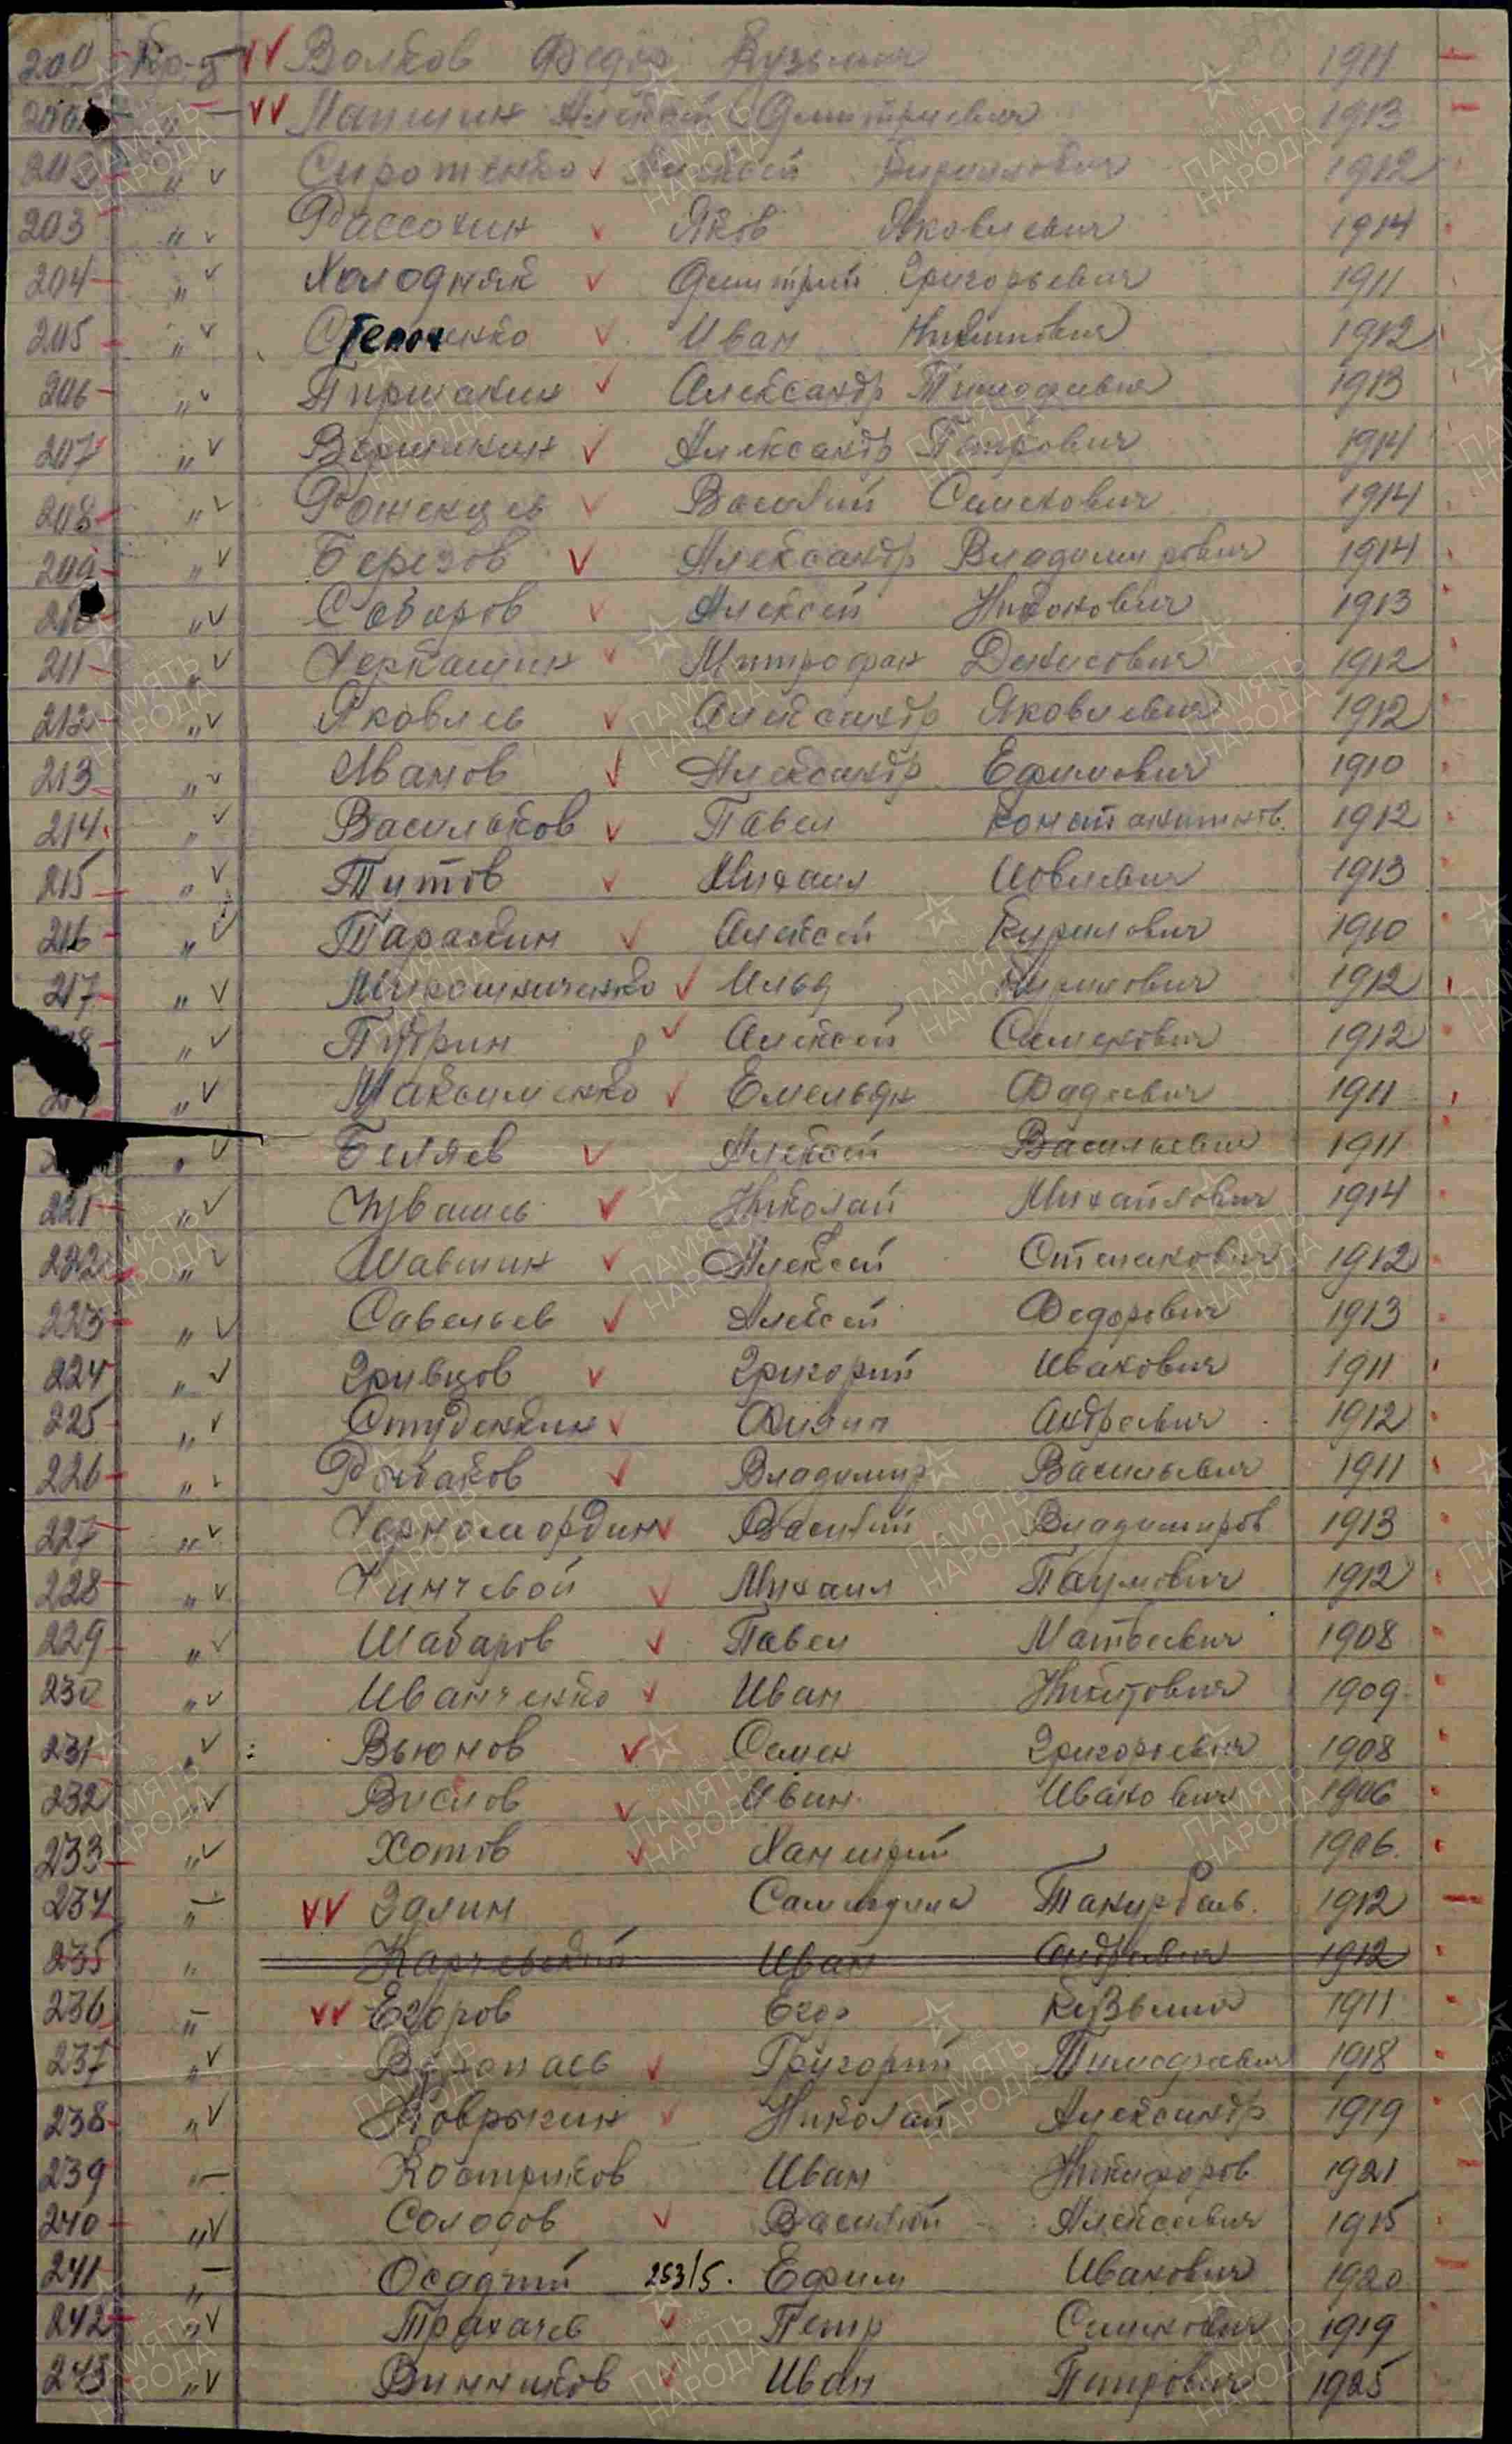 200 Кр-ц Волков Федор Кузьмич 1911
Лапшин Алексей Дмитриевич 1913
" Сиротенко Алексей Кириллович 1912
203 " Рассохин Яков Яковлевич 1914
204 " Холодняк Дмитрий Григорьевич 1911
205 " Иван 1912
206 " Александр Тимофеевич 1913
207 " Александр Петрович 1914
208 " Василий Семенович 1914
209 " Березов Александр Владимирович 1914
" Алексей 1913
211 " Черкашин Митрофан Денисович 1912
212 " Яковлев Александр Яковлевич 1912
213 " Иванов Александр Ефимович 1910
214 " Васильков Павел Константинов. 1912
215 " Титов Михаил Иовлевич 1913
216 " Тараскин Алексей Кирилович 1910
217 " Илья Кирилович 1912
" Пудрин Алексей Семенович 1912
" Максименко Емельян Фадеевич 1911
" Беляев Алексей Васильевич 1911
221 " Чувашев Николай Михайлович 1914
222 " Шавшин Алексей Степанович 1912
223 " Савельев Алексей Федорович 1913
224 " Гривцов Григорий Иванович 1911
225 " Студенкин Филип Андреевич 1912
226 " Рыбаков Владимир Васильевич 1911
227 " Черномордин Василий Владимиров 1913
228 " Чинчевой Михаил Наумович 1912
229 " Шабаров Павел Матвеевич 1908
230 " Иванченко Иван Никитович 1909
231 " Вьюнов Семен Григорьевич 1908
232 " Вислов Иван Иванович 1906
233 " Хотов 1906.
234 " Залин 1912
235 " Карчевский Иван Андреевич 1912
236 " Егоров Егор Кузьмич 1911
237 " Григорий Тимофеевич 1918
238 " Коврыгин Николай Александр 1919
239 " Костриков Иван Никифоров 1921
240 " Солодов Василий Алексеевич 1915
241 " Осадчий 253/5. Ефим Иванович 1920
242 " Трахачев Петр Семенович 1919
243 " Винников Иван Петрович 1925
ПАМЯТЬ НАРОДА